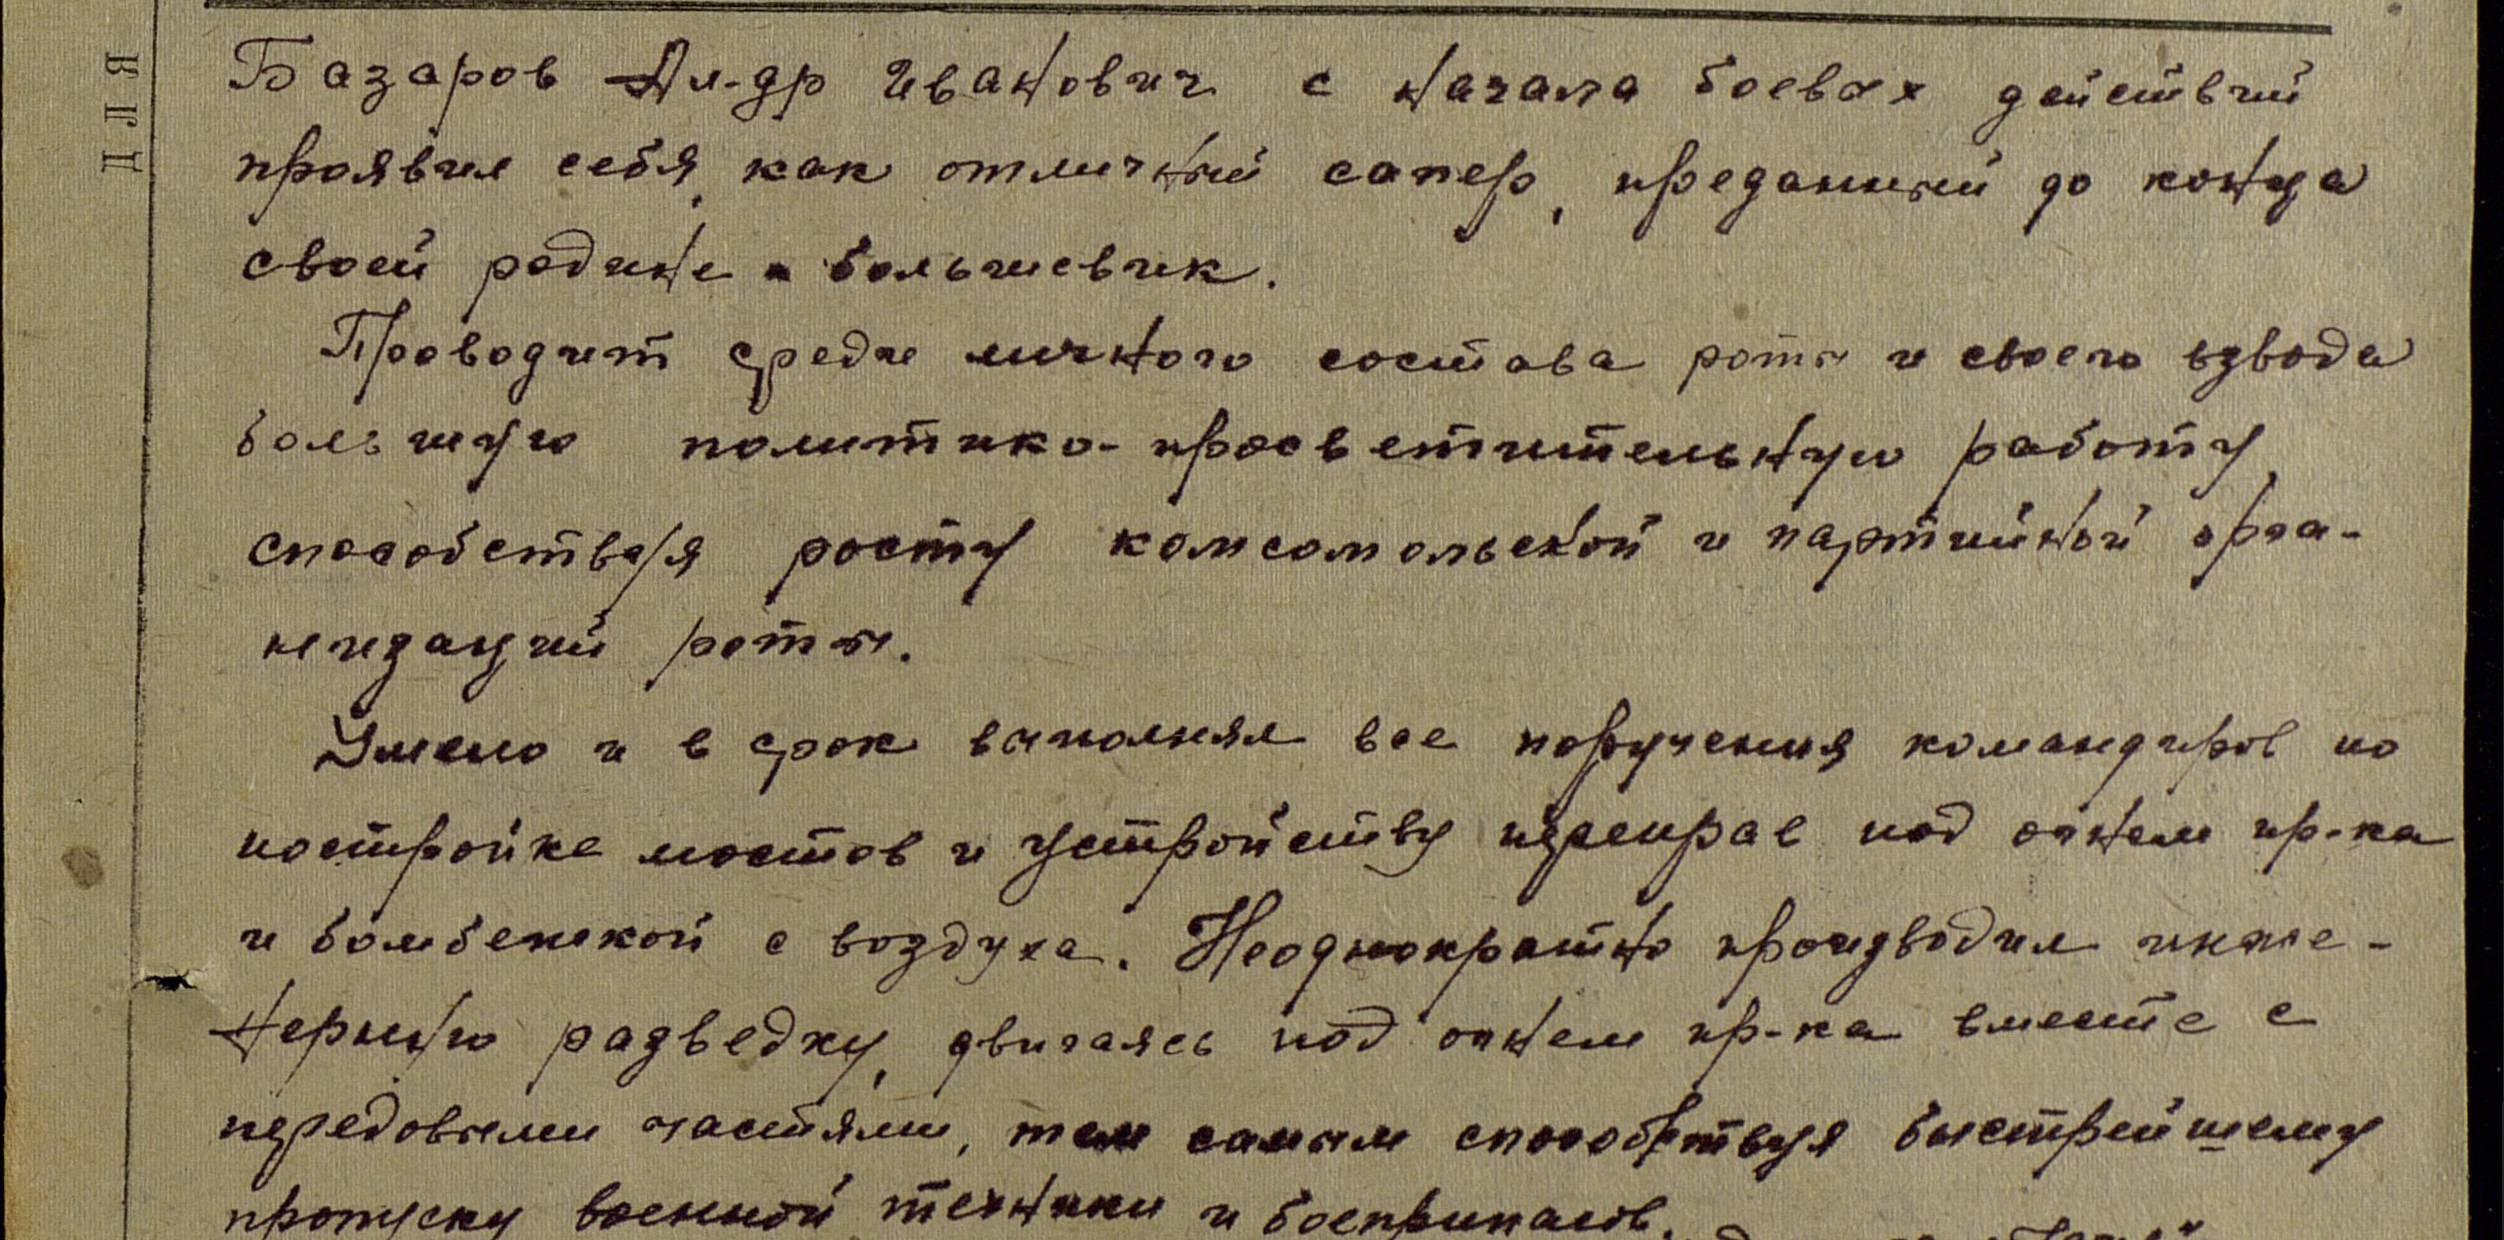 Базаров Ал-др Иванович с начала боевых действий
проявил себя, как отличный сапер, преданный до конца
своей родине - большевик.
Проводит среди личного состава роты и своего взвода
большую политико-просветительную работу,
способствуя росту комсомольской и партийной орга-
низаций роты.
Умело и в срок выполнял все поручения командиров по
постройке мостов и устройству переправ под огнем пр-ка
и бомбежкой с воздуха. Неоднократно производил инже-
нерную разведку, двигаясь под огнем пр-ка вместе с
передовыми частями, тем самым способствуя быстрейшему
пропуску военной техники и боеприпасов.
ДЛЯ